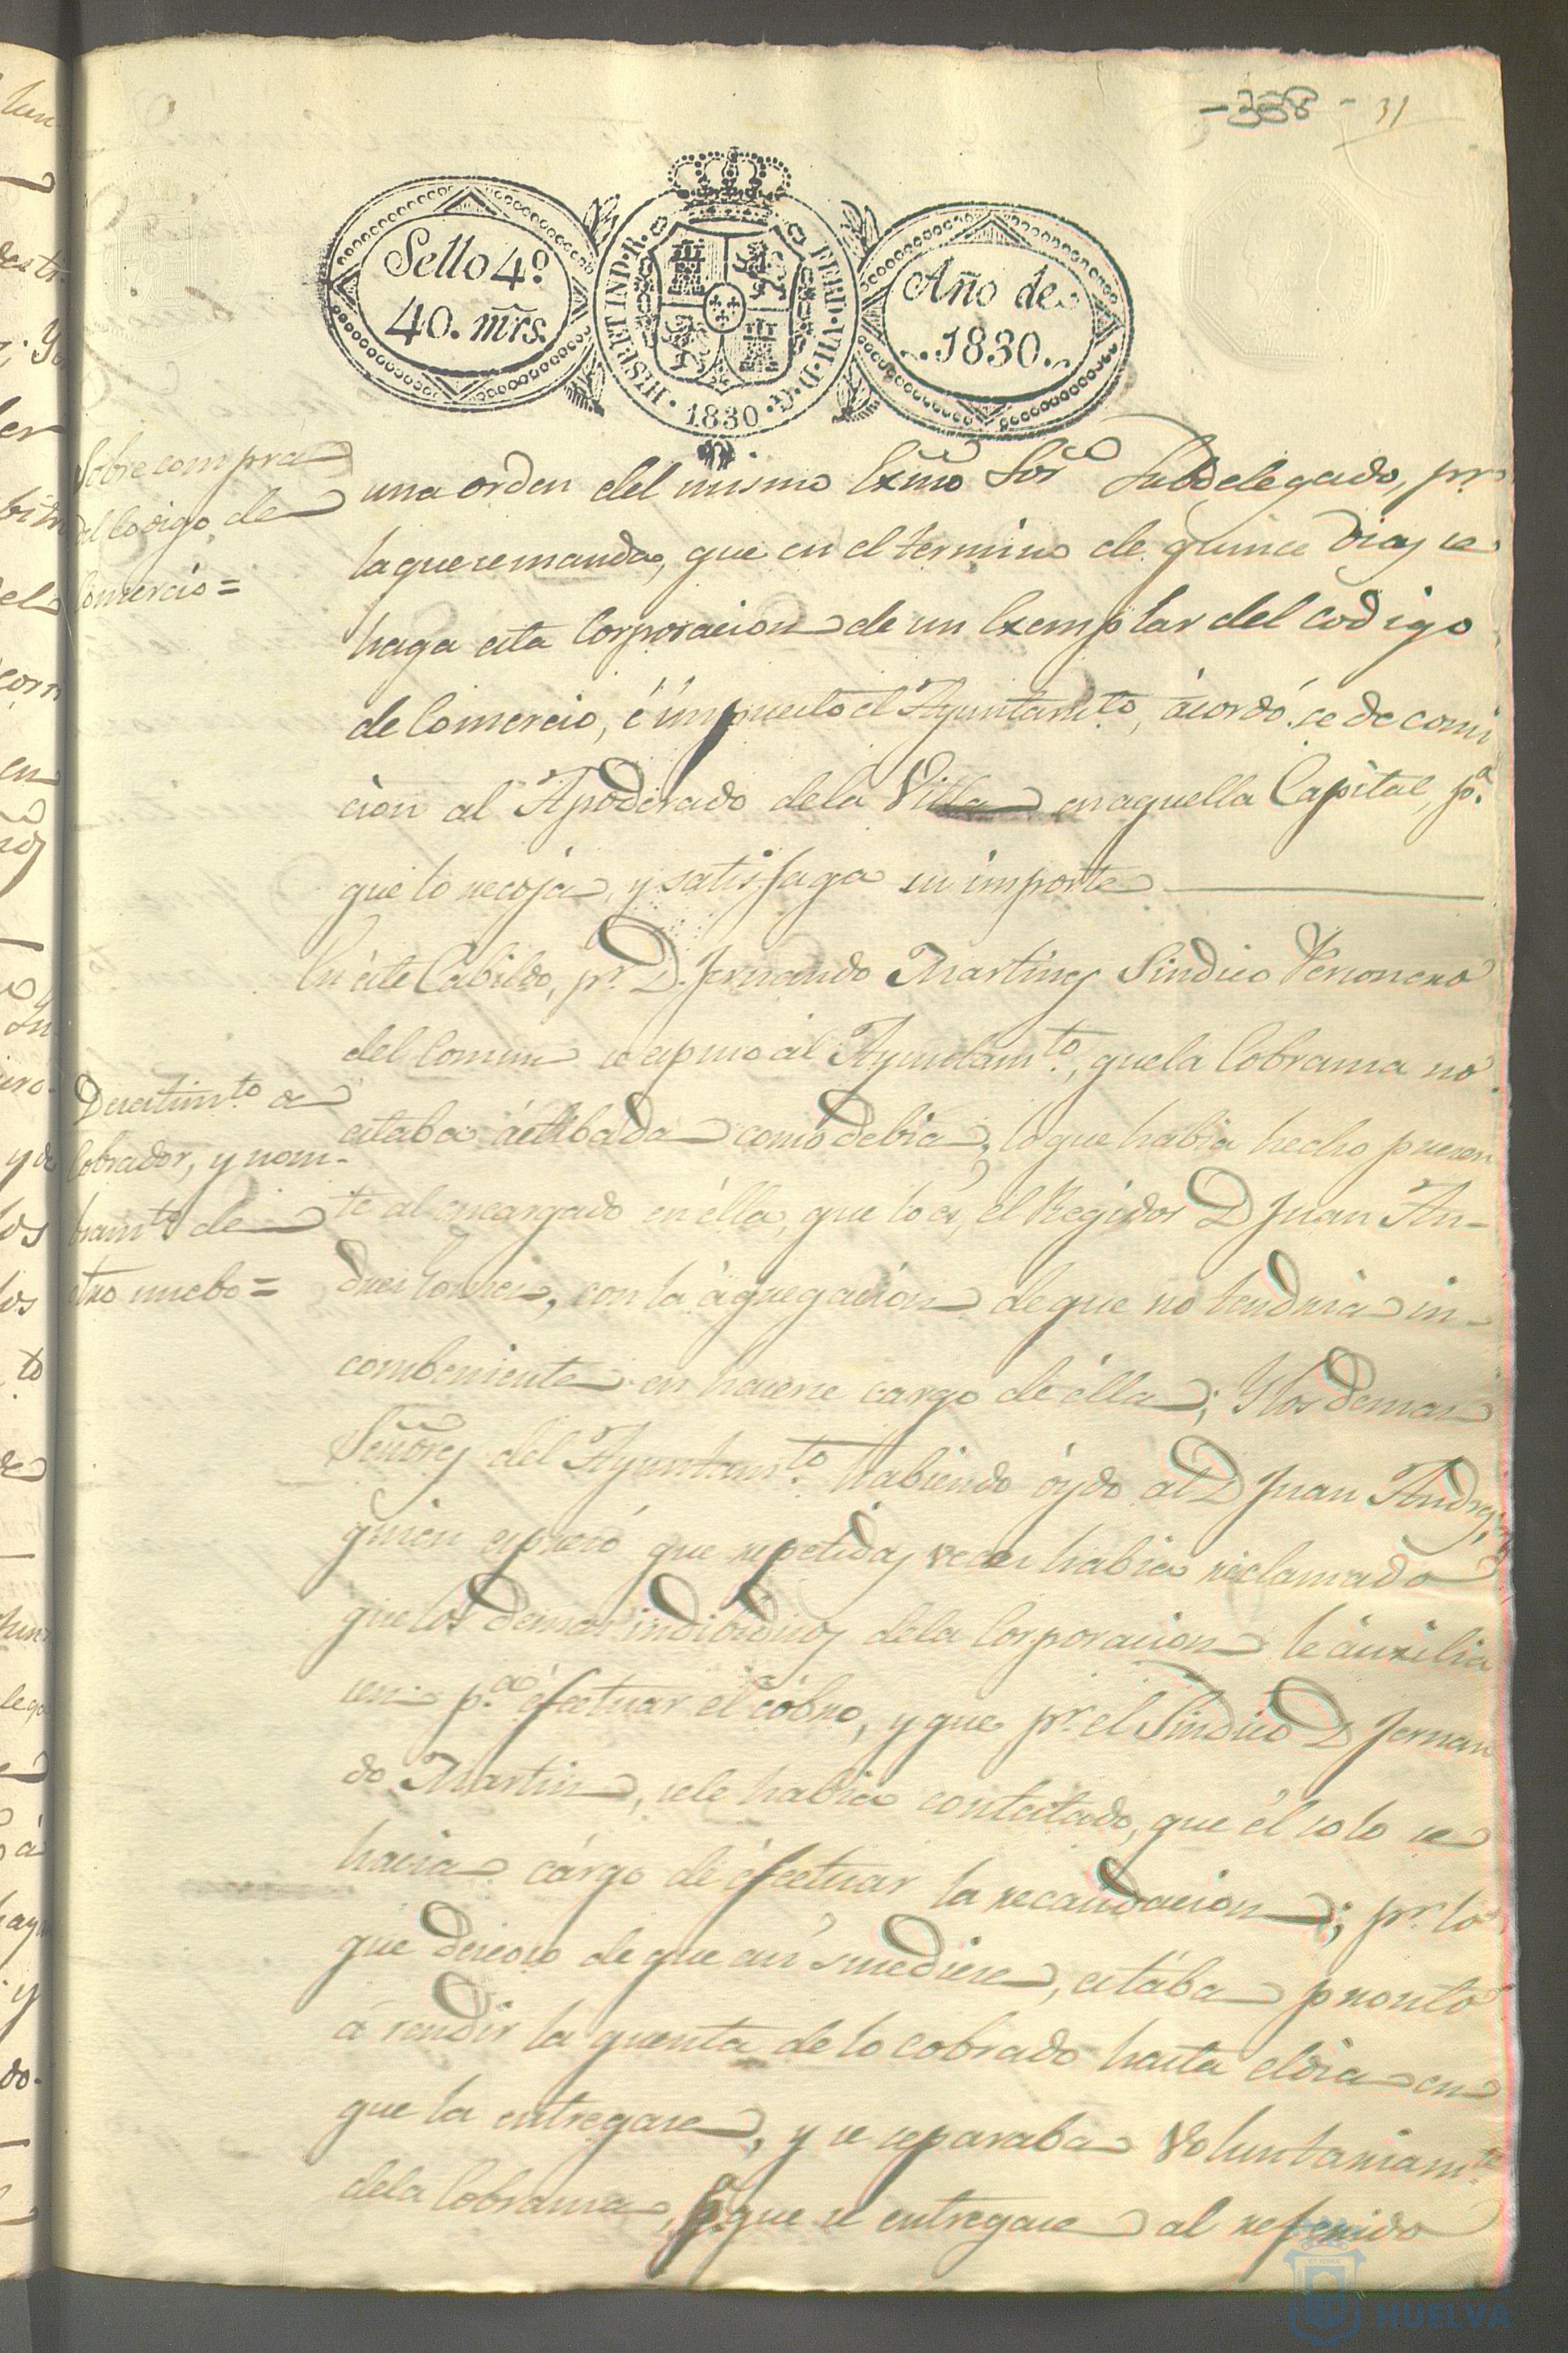 -338- 31
Sello 4º
40. mrs.
HISP. ET IND. R. FERD. VII. D. G. 1830
Año de
1830.
Sobre compra
del Codigo, de
Comercio=
una orden del mismo Exmo Sor Subdelegado, pr.
la que se manda, que en el termino de quince dias se
haga esta Corporacion de un Exemplar del codigo
de Comercio, é impuesto el Ayuntamto., acordó: se de comi
cion al Apoderado dela Villa en aquella Capital, pa.
que lo recoja, y satisfaga su importe
En este Cabildo, pr. D. Fernando Martinez Sindico Personero
del Comun se espuso al Ayuntamto., que la Cobransa no
Desestimto. de
Cobrador, y nom-
bramto. de
otro nuebo=
estaba actibada como debia, lo que habia hecho presen
te al encargado en élla, que lo es, el Regidor D Juan An-
dres, con la agregacion de que no tendria in-
combeniente en hacerse cargo de élla; Y los demas
Señores del Ayuntamto. habiendo óydo al D Juan Andres,
quien espresó que repetidas veces habia reclamado
que los demas indibiduos dela Corporacion le auxilia
sen pa. efectuar el cobro, y que pr. el Sindico D Fernan
do Martin, sele habia contestado, que él solo se
hacia cárgo de éfectuar la recaudacion; pr. lo
que deseoso de que asi sucediese, estaba pronto
á rendir la quenta de lo cobrado hasta el dia en
que la entregase, y se separaba Voluntariamte.
dela Cobransa, pa. que se entregase al referido
HUELVA